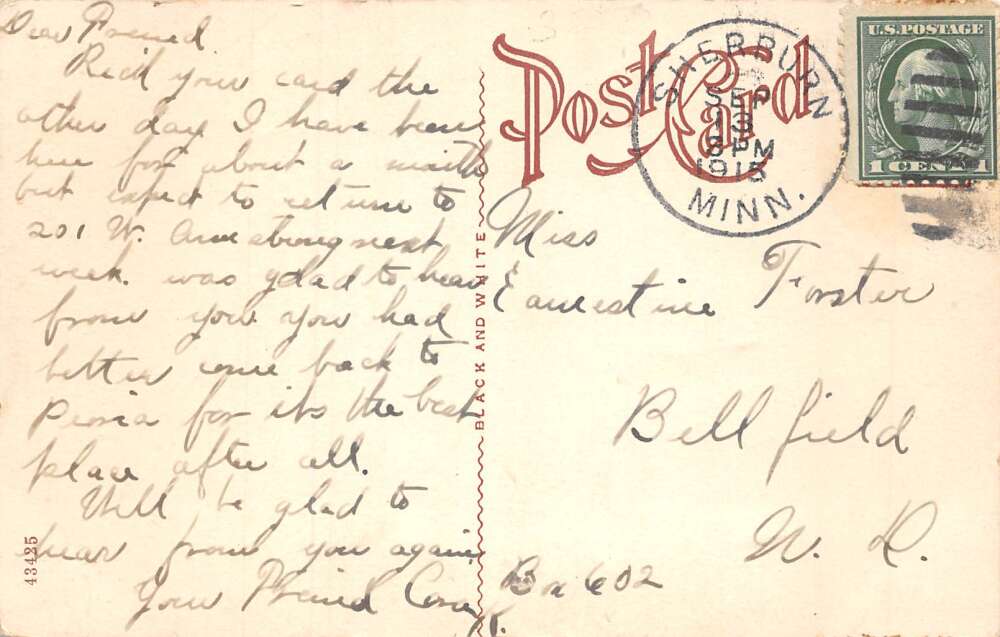 Dear Freind.
Rec'd your card the
other day I have been
here for about a month
but expect to return to
201 W. Armstrong next
week. was glad to hear
from you you had
better come back to
Peoria for its the best
place after all.
Will be glad to
hear from you again,
Your Freind
43425
BLACK AND WHITE
Post Card
SHERBURN
SEP
13
8 PM
1915
MINN.
U.S. POSTAGE
1 CENT 1
Miss
Earnestine Forster
Bellfield
N. D.
Box 602